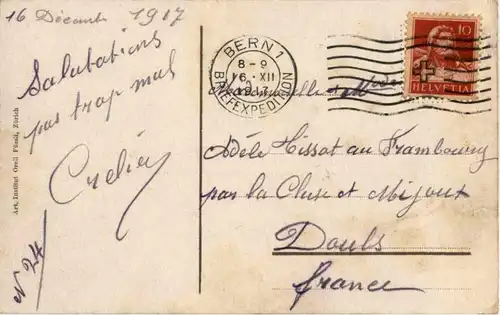 16 Décembre 1917
Salutations
pas trop mal
Crelier
No 24
Art. Institut Orell Füssli, Zürich
BERN 1
8-9
16. XII
1917
BRIEFEXPEDITION
10
HELVETIA
Mademoiselle
Adèle Hissat au Frambourg
par la Cluse et Mijoux
Doubs
france